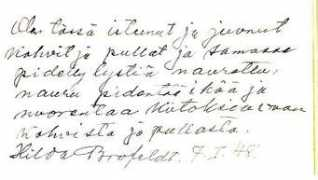 Olen tässä istunut ja juonut
kahvit ja pullat ja samassa
pidetty lystiä naurettu,
nauru pidentää ikää ja
nuorentaa Kiitoksia vaan
kahvista ja pullasta.
Hilda Brofeldt. 7.I.48.